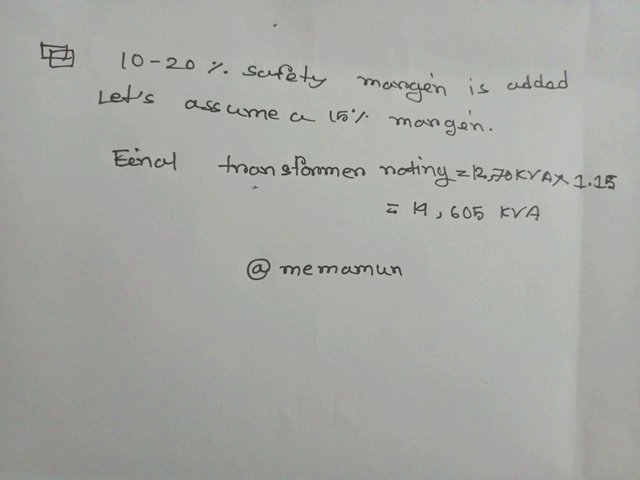 10-20 % safety margin is added
Let's assume a 15% margin.
Final transformer rating = 12,70 KVA x 1.15
= 14,605 KVA
@ memamun